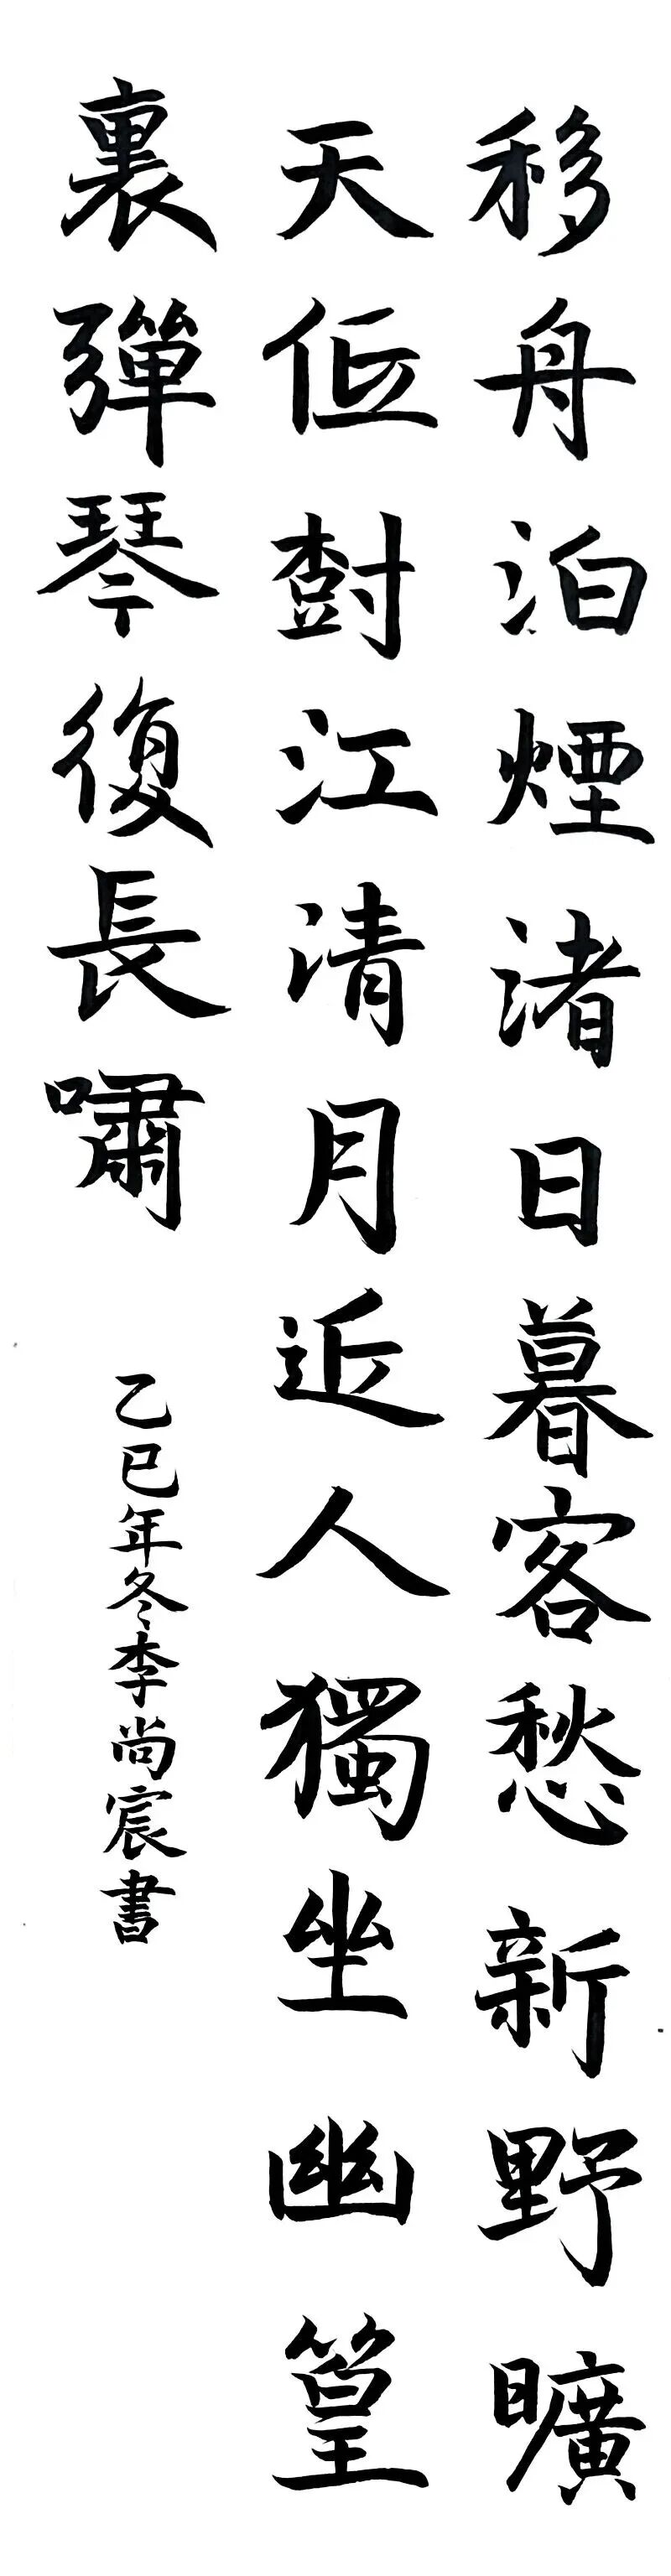 移舟泊煙渚日暮客愁新野曠
天低樹江清月近人獨坐幽篁
裏彈琴復長嘯
乙巳年冬李尚宸書